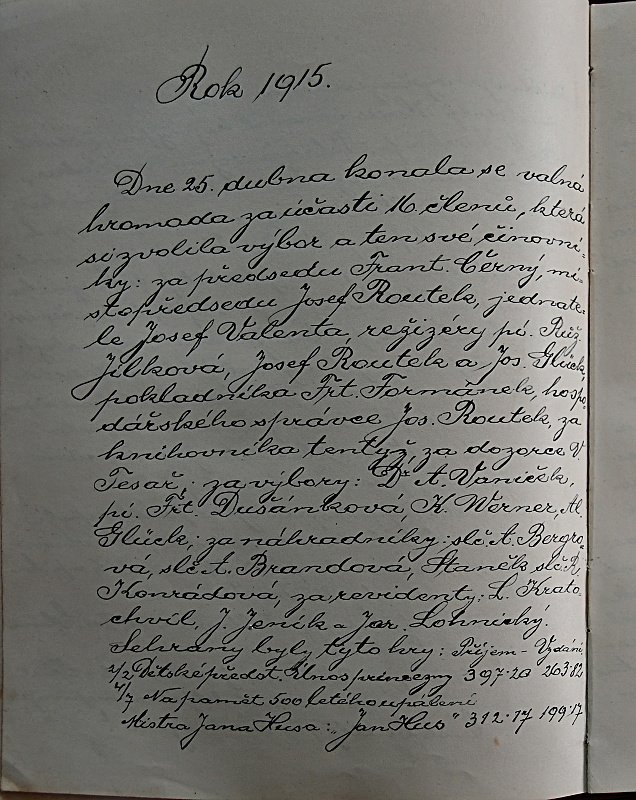 Rok 1915.
Dne 25. dubna konala se valná
hromada za účasti 16. členů, která
si zvolila výbor a ten své činovní-
ky: za předsedu Frant. Černý, mí-
stopředsedu Josef Routek, jednate-
le Josef Valenta, režizéry pí. Růž.
Jílková, Josef Routek a Jos. Glück,
pokladníka Frt. Formánek, hospo-
dářského správce Jos. Routek, za
knihovníka tentýž, za dozorce V.
Tesař, za výbory: Dr A. Vaníček,
pí. Frt. Dušánková, K. Werner, Al.
Glück, za náhradníky: slč. A. Bergro-
vá, slč. A. Brandová, Staněk slč. R.
Konrádová, za revidenty: L. Krato-
chvíl, J. Jeník a Jar. Lohnický.
Sehrány byly tyto hry: Příjem - Vydání
2/2 Dětské předst. Únos princezny 397·20 263·82
4/7 Na pamět 500 letého upálení
Mistra Jana Husa: „Jan Hus" 312·17 199·17